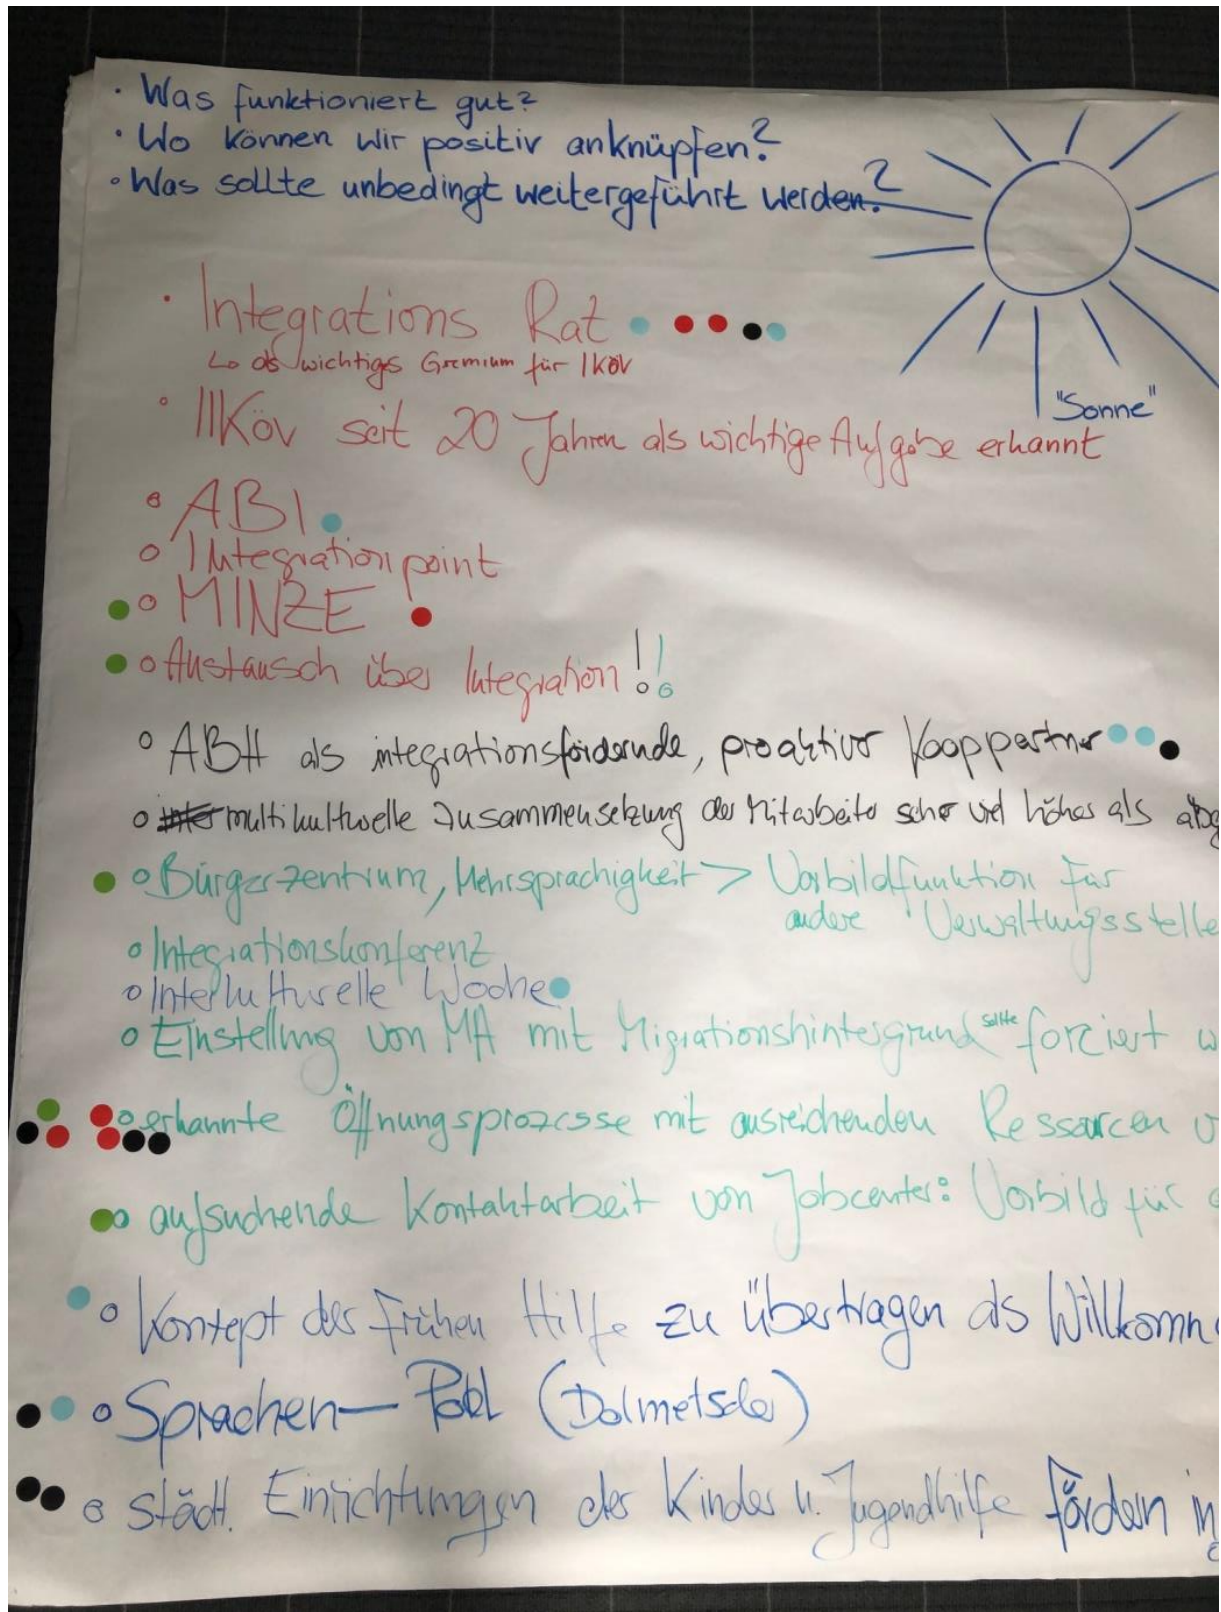 · Was funktioniert gut?
· Wo können wir positiv anknüpfen?
· Was sollte unbedingt weitergeführt werden?
"Sonne"
· Integrations Rat
↳ als wichtigs Gremium für IKÖV
· IKöv seit 20 Jahren als wichtige Aufgabe erkannt
· ABI
· Integrationpoint
· MINZE
· Austausch über Integration!!
· ABH als integrationsfördernde, proaktiver Kooppartner
· multikulturelle Zusammensetzung der Mitarbeiter schon viel höher als
· Bürgerzentrum, Mehrsprachigkeit > Vorbildfunktion für
andere Verwaltungsstelle
· Integrationskonferenz
· Interkulturelle Woche
· Einstellung von MA mit Migrationshintergrund sollte forciert w
· erkannte Öffnungsprozesse mit ausreichenden Ressourcen
· aufsuchende Kontaktarbeit von Jobcenter: Vorbild für
· Konzept der Frühen Hilfe zu übertragen als Willkomm
· Sprachen-Pool (Dolmetscher)
· Städt. Einrichtungen der Kinder u. Jugendhilfe fördern in